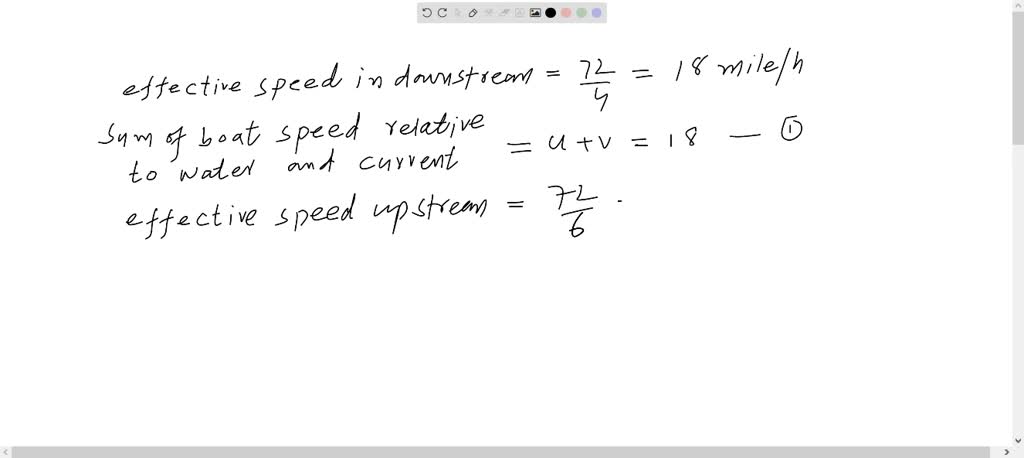 effective speed in downstream = 72/4 = 18 mile/h
Sum of boat speed relative to water and current = u + v = 18 — ①
effective speed upstream = 72/6 .